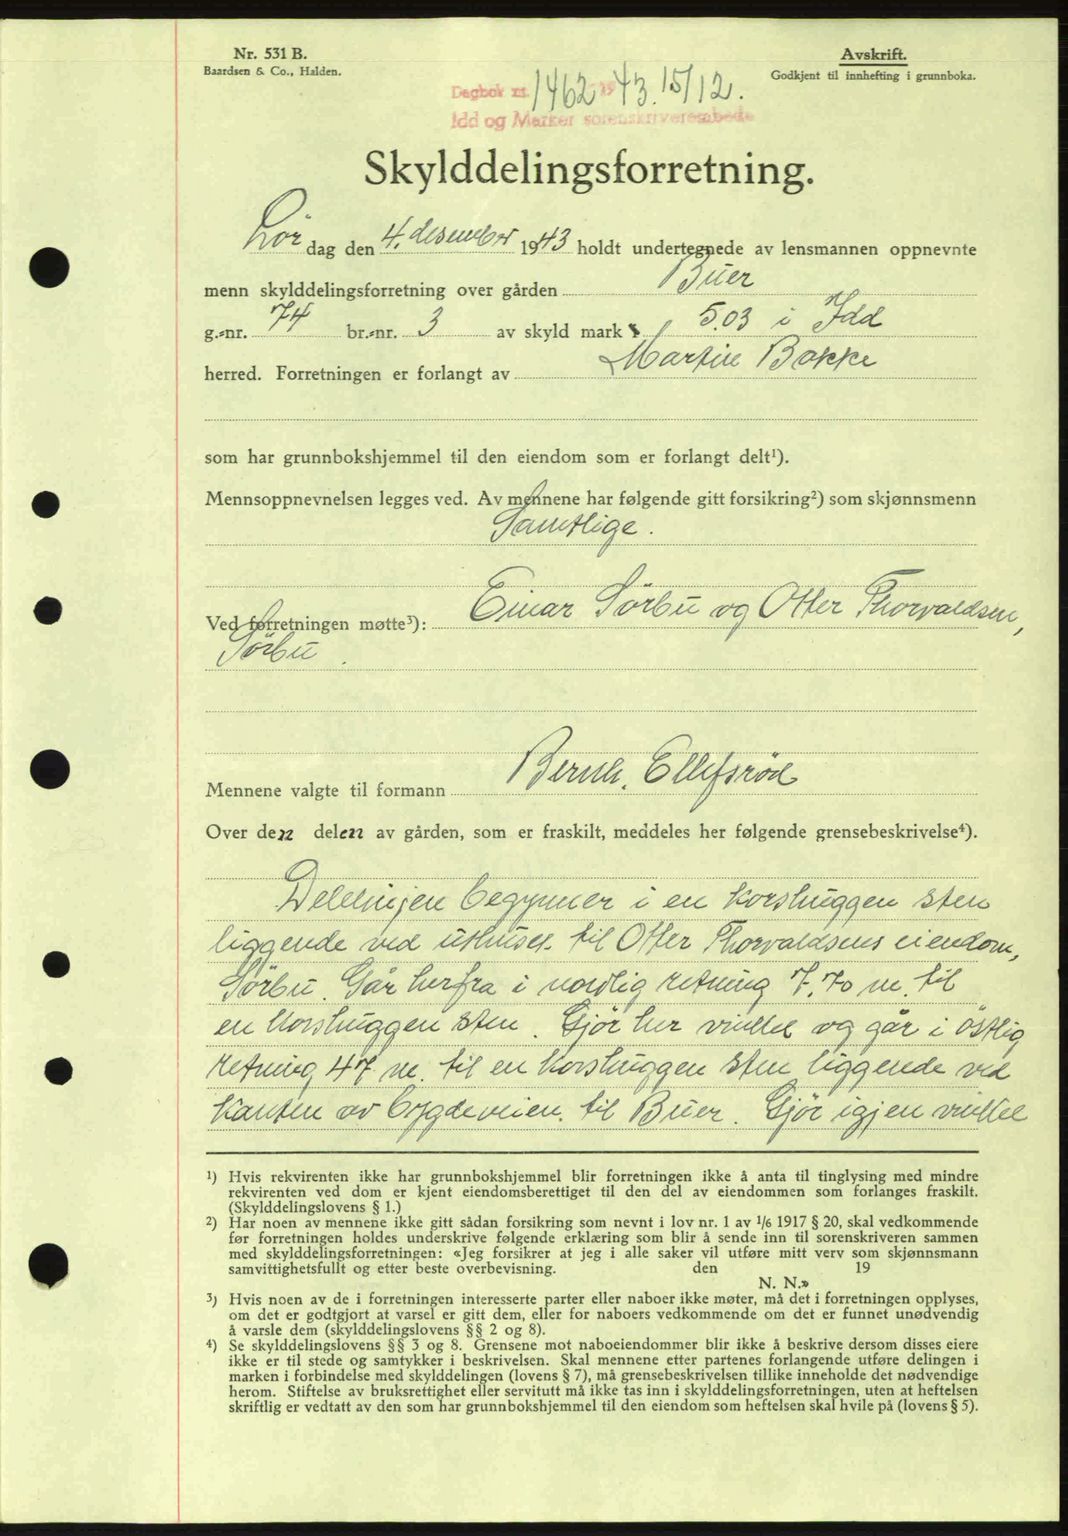 Nr. 531 B.
Baardsen & Co., Halden.
Avskrift.
Godkjent til innhefting i grunnboka.
Dagbok nr. 1462 19 43. 15/12.
Idd og Marker sorenskriverembede
Skylddelingsforretning.
Lör dag den 4. desember 1943 holdt undertegnede av lensmannen oppnevnte
menn skylddelingsforretning over gården Buer
g.-nr. 74 br.-nr. 3 av skyld mark 5.03 i Idd
herred. Forretningen er forlangt av Martin Bakke
som har grunnbokshjemmel til den eiendom som er forlangt delt¹).
Mennsoppnevnelsen legges ved. Av mennene har følgende gitt forsikring²) som skjønnsmenn
Samtlige.
Ved forretningen møtte³): Einar Sörbu og Otter Thorvaldsen,
Sörbu.
Mennene valgte til formann Bernh. Ellefsrød
Over den delen av gården, som er fraskilt, meddeles her følgende grensebeskrivelse⁴).
Delelinjen begynner i en korshuggen sten
liggende ved uthuset til Otter Thorvaldsens eiendom,
Sörbu. Går herfra i nordlig retning 7,70 m. til
en korshuggen sten. Gjör her vinkel og går i östlig
retning 47 m. til en korshuggen sten liggende ved
kanten av bygdeveien til Buer. Gjör igjen vinkel
¹) Hvis rekvirenten ikke har grunnbokshjemmel blir forretningen ikke å anta til tinglysing med mindre
rekvirenten ved dom er kjent eiendomsberettiget til den del av eiendommen som forlanges fraskilt.
(Skylddelingslovens § 1.)
²) Har noen av mennene ikke gitt sådan forsikring som nevnt i lov nr. 1 av 1/6 1917 § 20, skal vedkommende
før forretningen holdes underskrive følgende erklæring som blir å sende inn til sorenskriveren sammen
med skylddelingsforretningen: «Jeg forsikrer at jeg i alle saker vil utføre mitt verv som skjønnsmann
samvittighetsfullt og etter beste overbevisning. den 19
N. N.»
³) Hvis noen av de i forretningen interesserte parter eller naboer ikke møter, må det i forretningen opplyses,
om det er godtgjort at varsel er gitt dem, eller for naboers vedkommende om det er funnet unødvendig
å varsle dem (skylddelingslovens §§ 2 og 8).
⁴) Se skylddelingslovens §§ 3 og 8. Grensene mot naboeiendommer blir ikke å beskrive dersom disses eiere
ikke er til stede og samtykker i beskrivelsen. Skal mennene etter partenes forlangende utføre delingen i
marken i forbindelse med skylddelingen (lovens § 7), må grensebeskrivelsen tillike inneholde det nødvendige
herom. Stiftelse av bruksrettighet eller servitutt må ikke tas inn i skylddelingsforretningen, uten at heftelsen
skriftlig er vedtatt av den som har grunnbokshjemmel til den eiendom som heftelsen skal hvile på (lovens § 5).